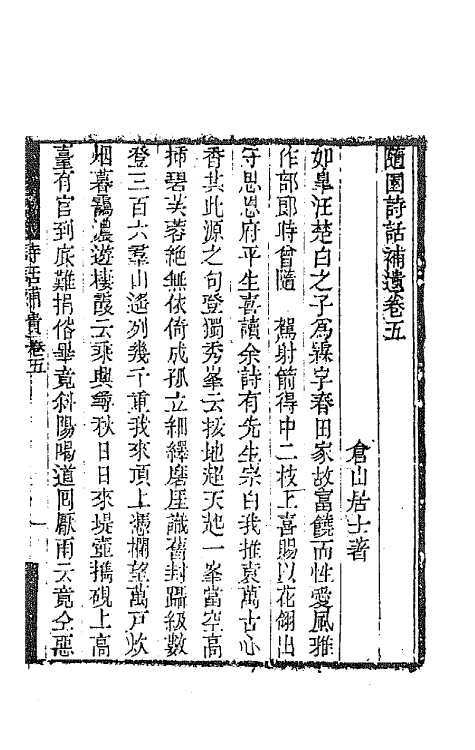 隨園詩話補遺卷五
倉山居士著
如臯汪楚白之子為霖字春田家故富饒而性愛風雅
作部郎時曾隨 駕射箭得中二枝上喜賜以花翎出
守思恩府平生喜讀余詩有先生宗白我推袁萬古心
香其此源之句登獨秀峯云拔地超天起一峯當空高
揷碧芙蓉絶無依倚成孤立細繹磨厓識舊封躡級數
登三百六羣山遙列幾千重我來頂上憑欄望萬戸炊
烟暮靄濃遊棲霞云乘興尋秋日日來堤壺擕硯上高
臺有官到底難捐俗畢竟斜陽喝道囘厭雨云竟仝惡
詩話補遺 卷五 一